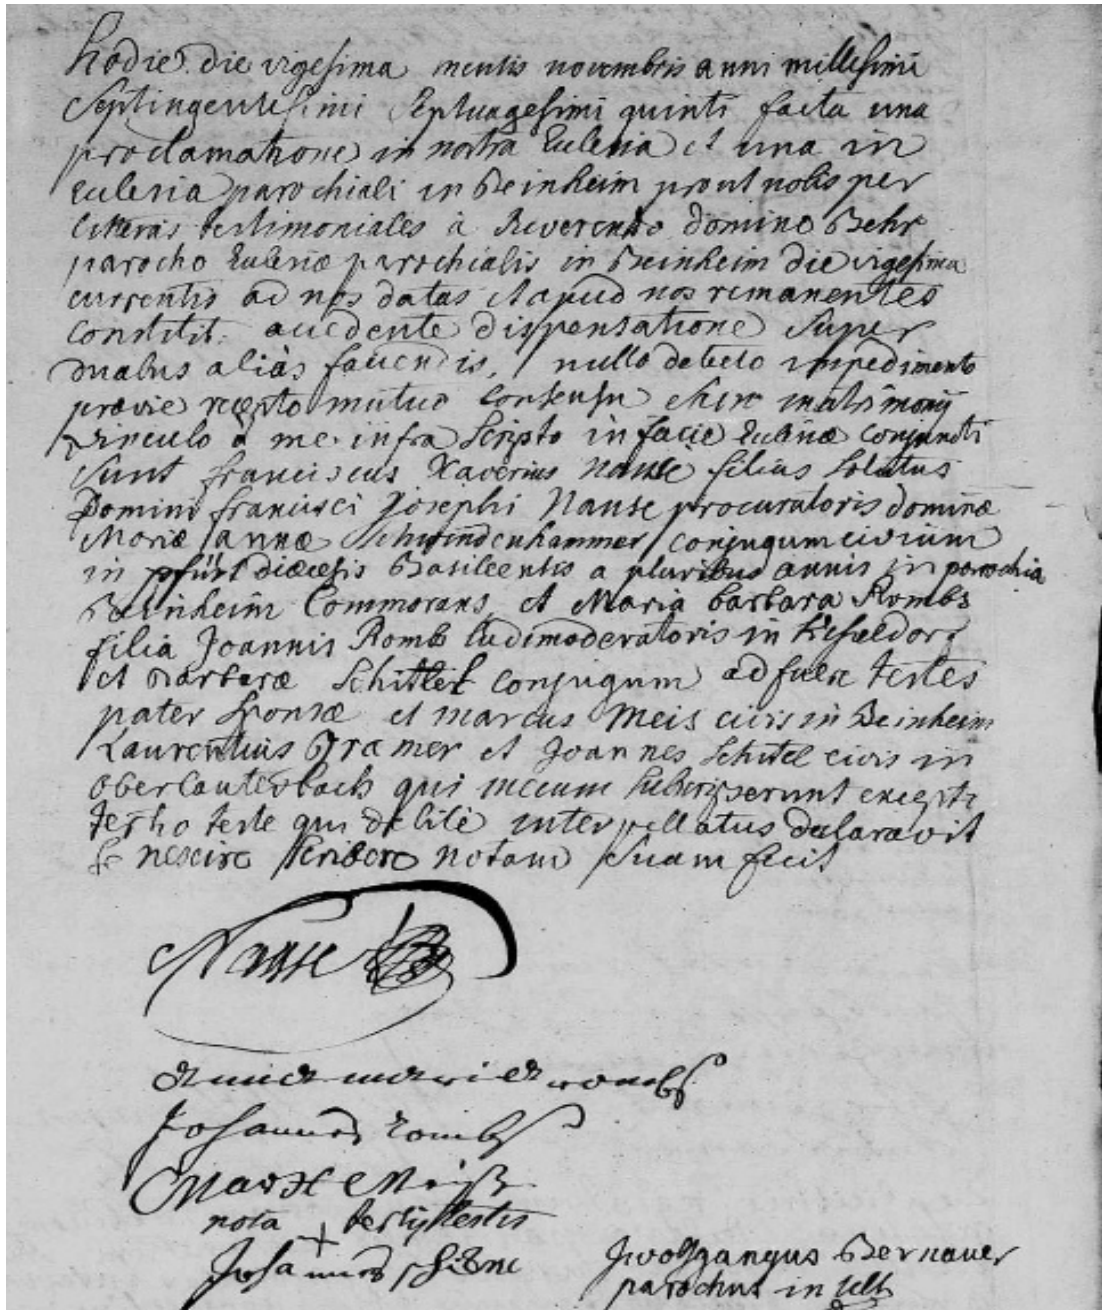 hodie die vigesima mensis novembris anni millesimi
Septingentesimi Septuagesimi quinti facta una
proclamatione in nostra Ecclesia et una in
Ecclesia parochiali in Beinheim prout nobis per
litteras testimoniales a Reverendo domino Behr
parocho Ecclesiæ parochialis in Beinheim die vigesima
currentis ad nos datas et apud nos remanentes
constitit. accedente dispensatione super
duabus aliàs faciendis, nullo detecto impedimento
prævie recepto mutuo consensu matrimonij
vinculo à me infra Scripto in facie Ecclesiæ conjuncti
Sunt franciscus Xaverius Nause filius Solutus
Domini francisci Josephi Nause procuratoris dominæ
Mariæ annæ Schwindenhammer conjugum civium
in pfirt diœcesis Basileensis a pluribus annis in parochia
Beinheim Commorans, et Maria barbara Rombs
filia Joannis Romb ludimoderatoris in
et barbaræ Schittel conjugum adfuere testes
pater Sponsæ et marcus Meis civis in Beinheim
Laurentius Cramer et Joannes Schitel civis in
oberlauterbach qui mecum subscripserunt excepto
tertio teste qui debitè interpellatus declaravit
se nescire scribere notam Suam fecit
Nause
anna maria rombs
Johannes rombs
Marx Meiß
nota + tertij testis
Johannes
Jwolfgangus Bernauer
parochus in